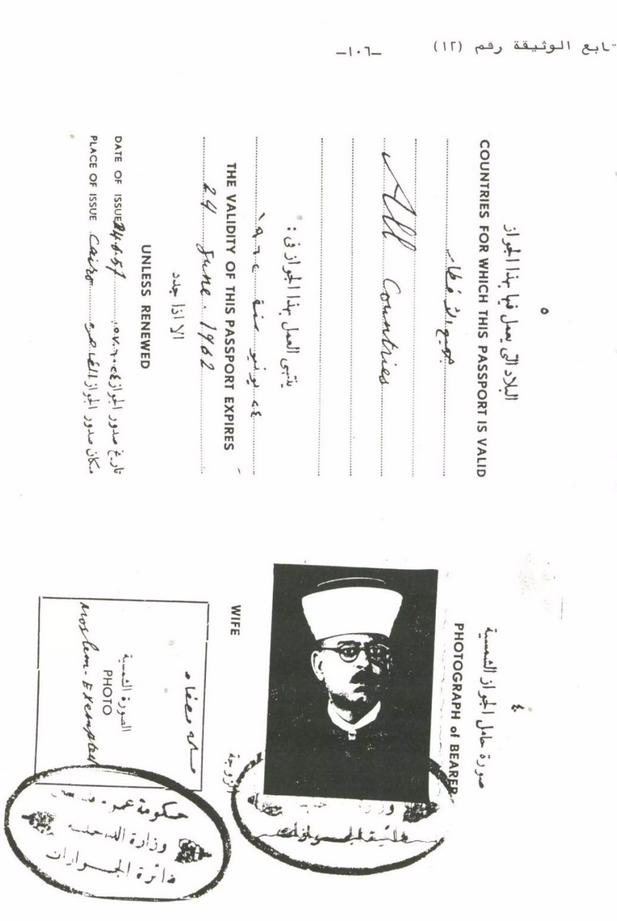 تابع الوثيقة رقم (١٢)
–١٠٦–
٥
البلاد التى يعمل فيها بهذا الجواز
COUNTRIES FOR WHICH THIS PASSPORT IS VALID
جميع الأقطار
All Countries
ينتهى العمل بهذا الجواز فى :
٢٤ يونيو سنة ١٩٦٢
THE VALIDITY OF THIS PASSPORT EXPIRES
24 June. 1962
الا اذا جدد
UNLESS RENEWED
DATE OF ISSUE
تاريخ صدور الجواز
PLACE OF ISSUE Cairo
مكان صدور الجواز القاهرة
٤
صورة حامل الجواز الشمسية
PHOTOGRAPH of BEARER
WIFE
الزوجة
مسلمة معفاه
الصورة الشمسية
PHOTO
Moslem-Exempted
حكومة عموم
وزارة
دائرة الجوازات